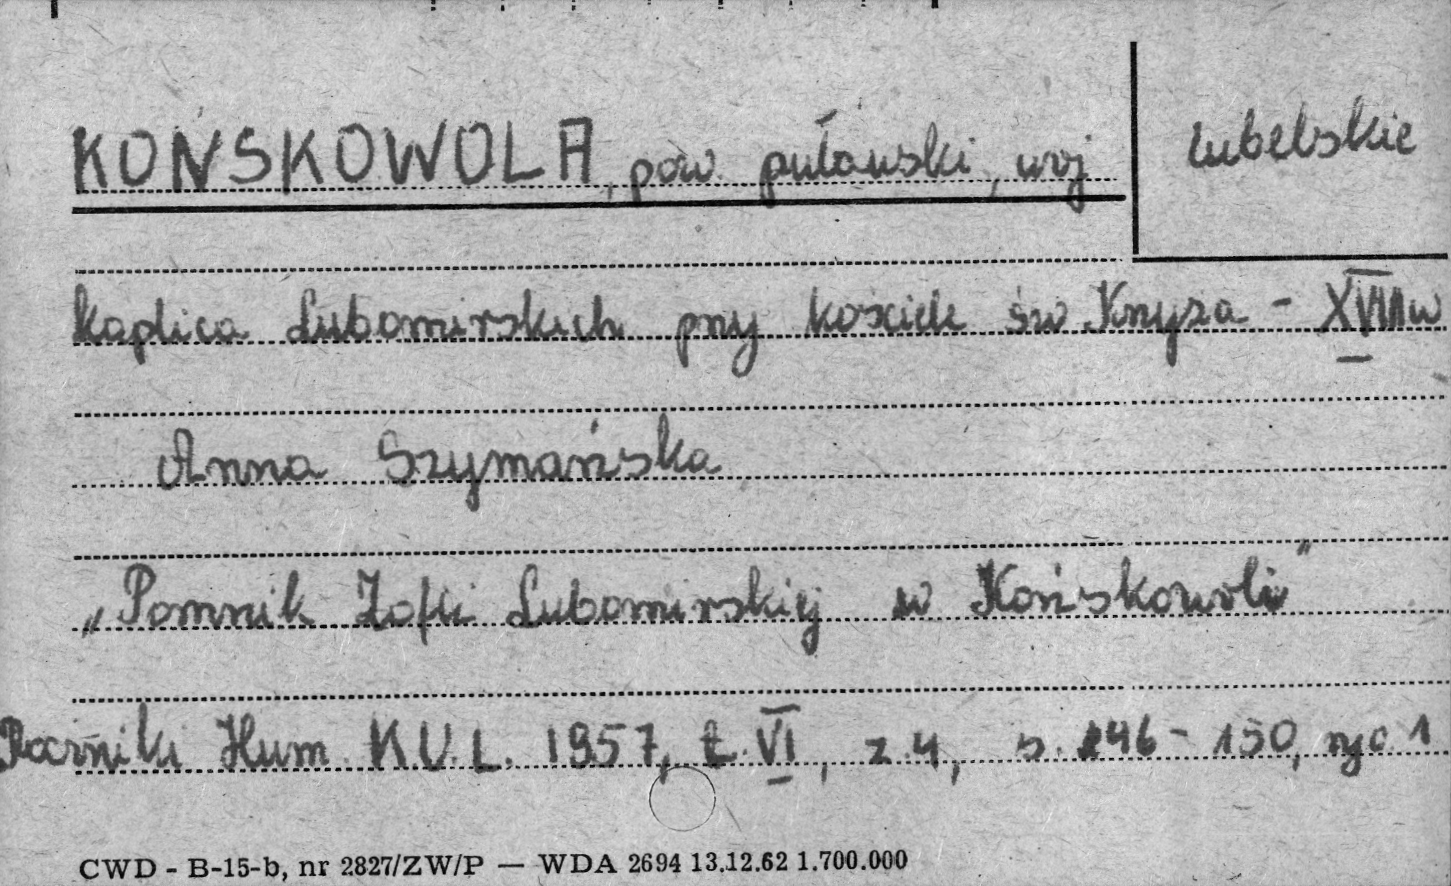 KOŃSKOWOLA, pow. puławski, woj lubelskie
kaplica Lubomirskich przy kościele św Krzyża - XVIII w
Anna Szymańska
„Pomnik Zofii Lubomirskiej w Końskowoli”
Roczniki Hum. K.U.L. 1957, t. VI, z.4, s. 146-150, ryc 1
CWD - B-15-b, nr 2827/ZW/P — WDA 2694 13.12.62 1.700.000